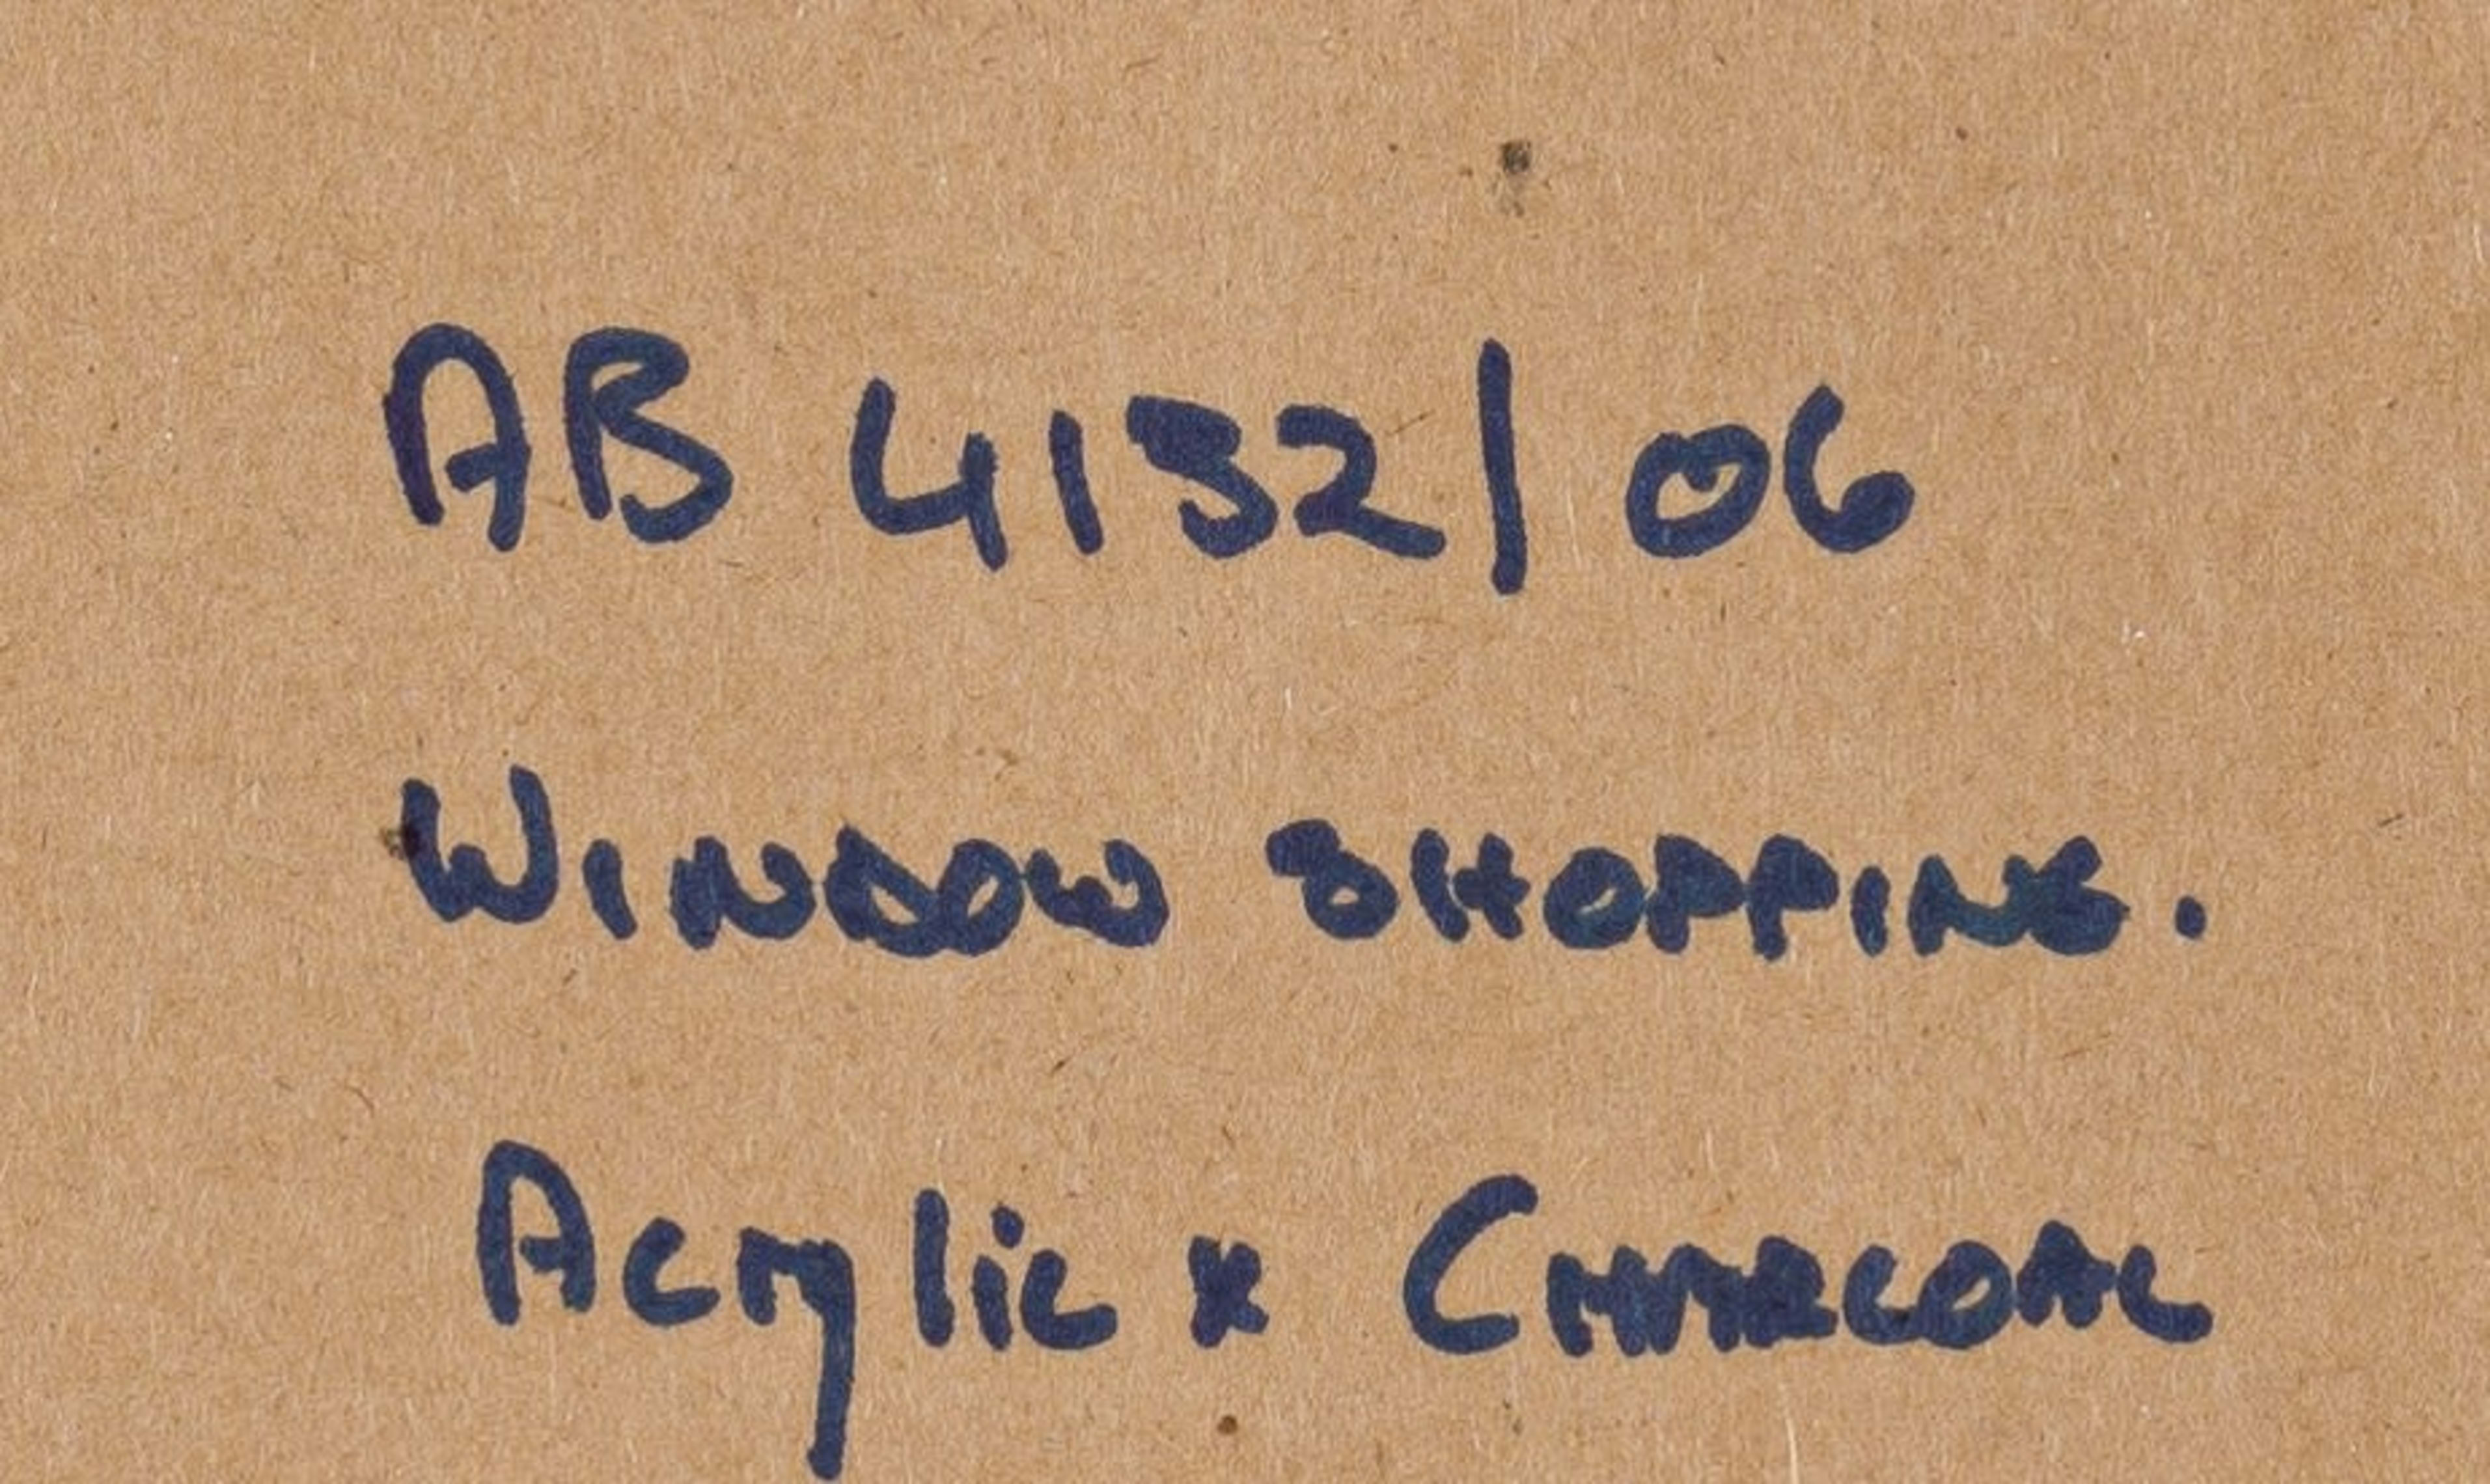 AB 4132/06
WINDOW SHOPPING.
Acrylic x CHARCOAL